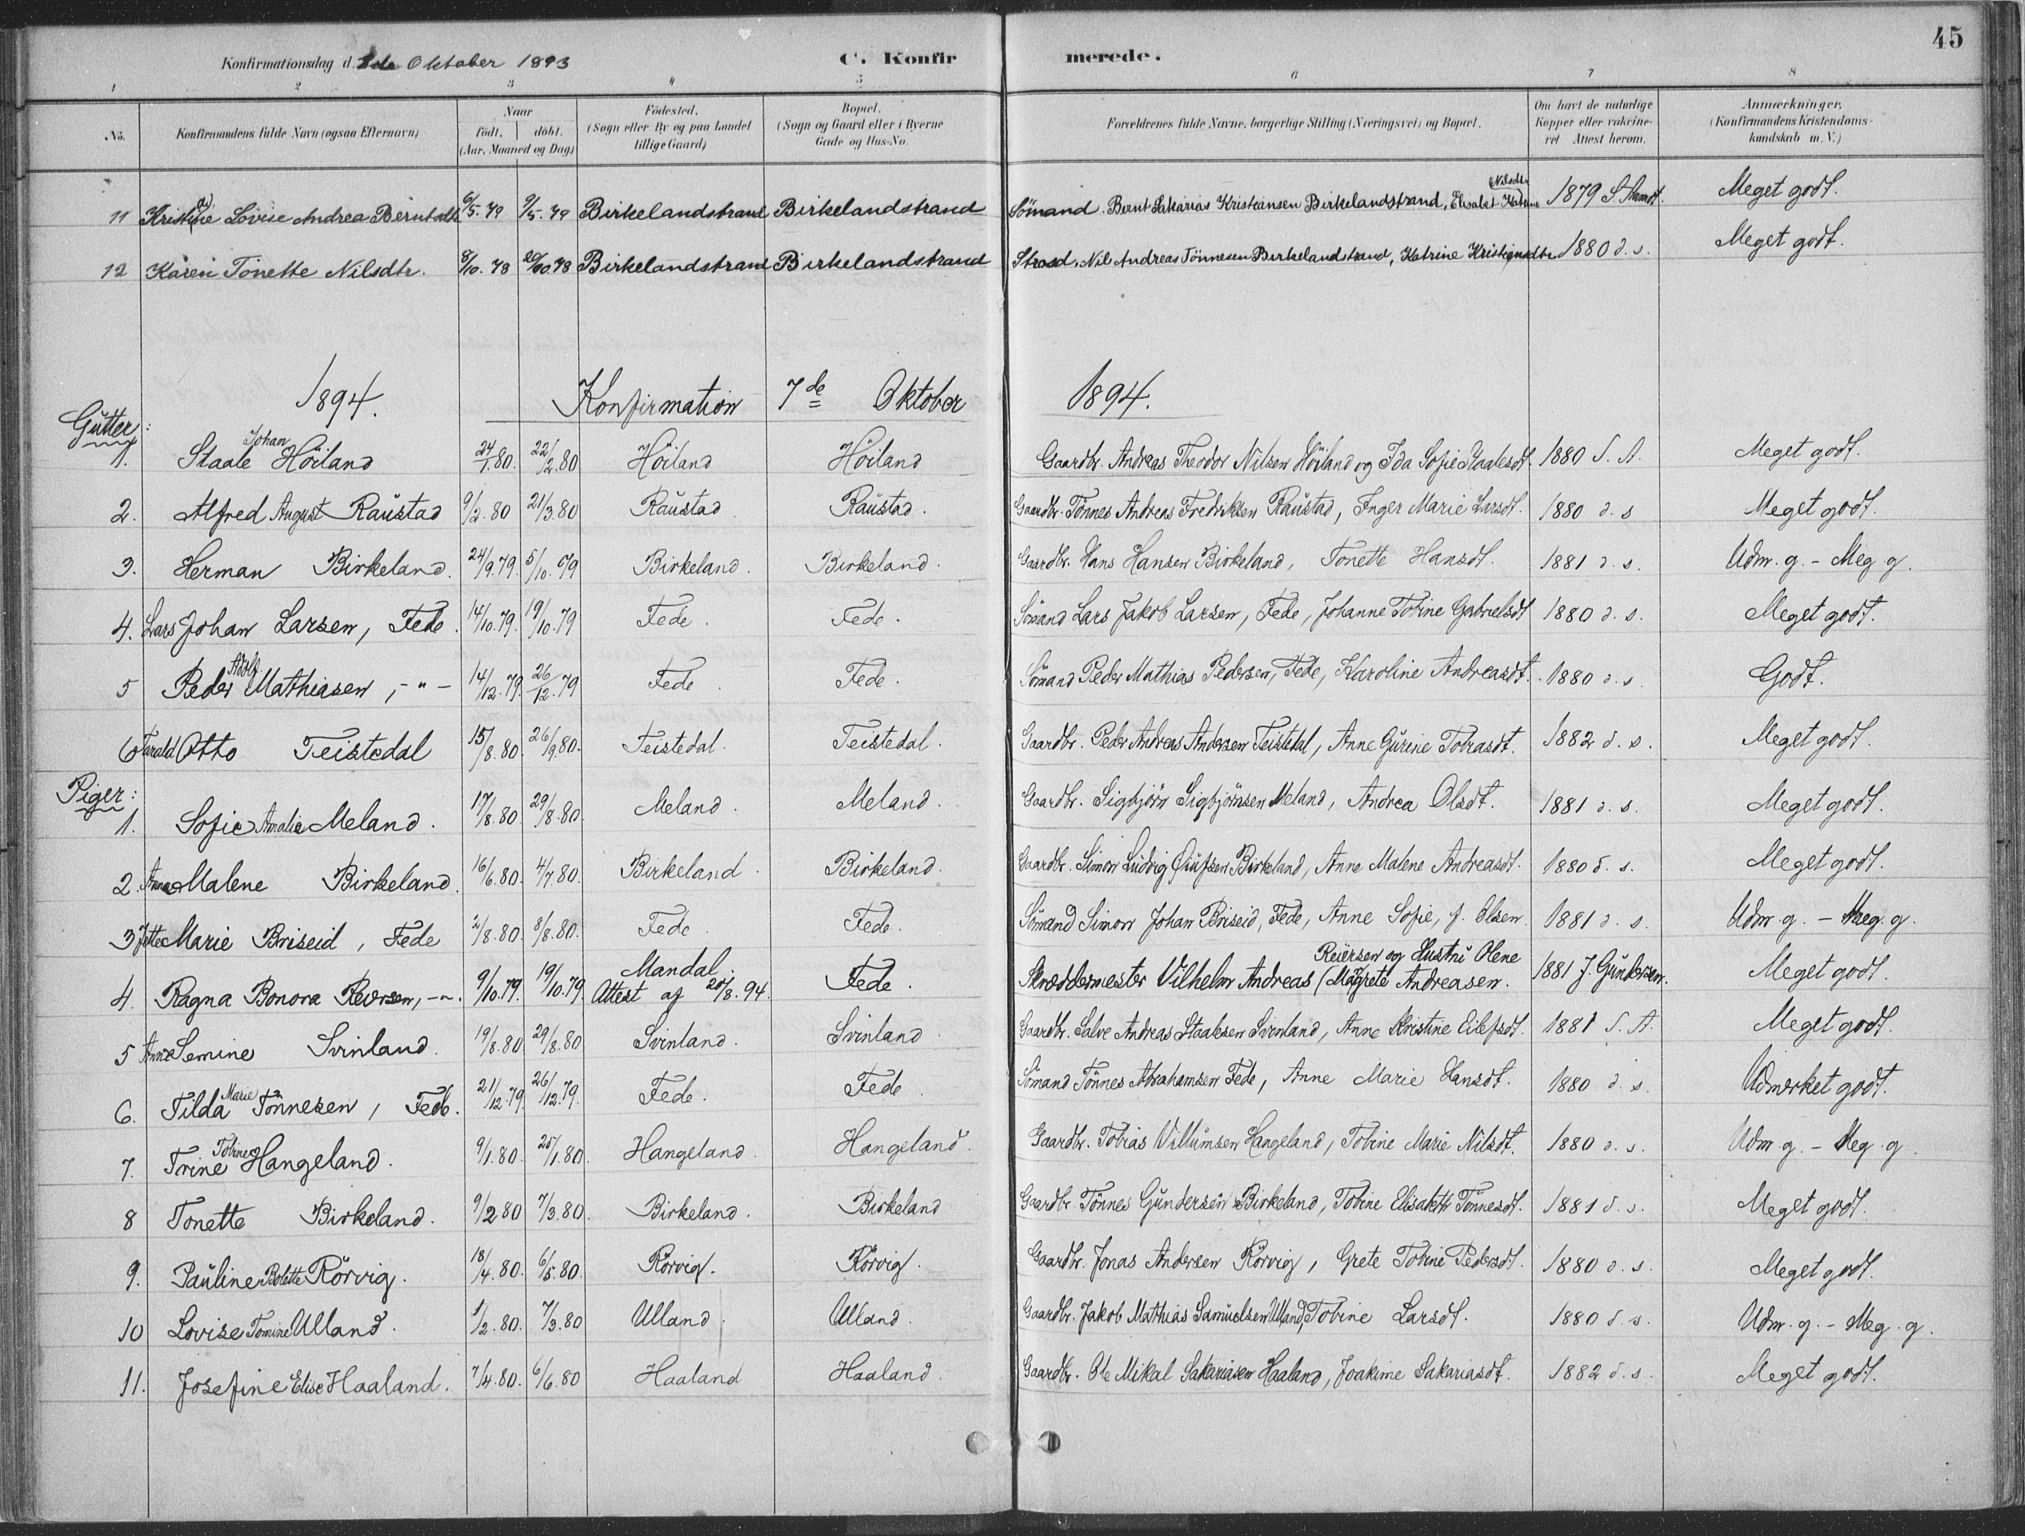 45
Konfirmationsdag d. 1ste Oktober 1893 C. Konfir merede.
1 2 3 4 5 6 7 8
No. Konfirmandens fulde Navn (ogsaa Efternavn) Naar født, døbt. (Aar, Maaned og Dag) Fødested. (Sogn eller By og paa Landet tillige Gaard) Bopæl. (Sogn og Gaard eller i Byerne Gade og Hus-No. Forældrenes fulde Navne, borgerlige Stilling (Næringsvei) og Bopæl. Om havt de naturlige Kopper eller vakcineret. Attest herom. Anmærkninger. (Konfirmandens Kristendomskundskab m. V.)
11 Lovise Andrea Berntsdtr. 6/5.79 9/5.79 Birkelandstrand Birkelandstrand Sømand. Bernt Sakarias Kristiansen Birkelandstrand, Elisabet Nilsdt. 1879 Meget godt.
12 Karen Tonette Nilsdtr. 8/10.78 20/10.78 Birkelandstrand Birkelandstrand Nil Andreas Tønnesen Birkelandstrand, Katrine Kristiansdtr 1880 d. s. Meget godt.
1894. Konfirmation 7de Oktober 1894.
Gutter:
1. Staale Johan Høiland 24/1.80. 22/2.80 Høiland Høiland Gaardbr. Andreas Theodor Nilsen Høiland og Ida Sofie Staalesdt. 1880 S. A. Meget godt.
2. Alfred August Raustad 9/2.80 21/3.80 Raustad Raustad. Gaardbr. Tønnes Andreas Fredriksen Raustad, Inger Marie Larsdt. 1880 d. s Meget godt.
3. Herman Birkeland. 24/9.79. 5/10.79 Birkeland. Birkeland. Gaardbr. Hans Hansen Birkeland, Tonette Hansdt. 1881 d. s. Udm. g. - Meg. g.
4. Lars Johan Larsen, Fede. 14/10.79. 19/10.79 Fede. Fede. Sømand Lars Jakob Larsen, Fede, Johanne Tobine Gabrielsdt 1880 d. s. Meget godt.
5 Peder Adolf Mathiasen, - " - 14/12.79. 26/12.79 Fede. Fede. Sømand Peder Mathias Pedersen, Fede, Karoline Andreasdt. 1880 d. s. Godt.
6 Tarald Otto Teistedal 15/8.80. 26/9.80. Teistedal. Teistedal. Gaardbr. Peder Andreas Andersen Teistedal, Anne Gurine Tobiasdt. 1882 d. s. Meget godt.
Piger:
1. Sofie Amalie Meland. 17/8.80. 29/8.80. Meland. Meland. Gaardbr. Sigbjørn Sigbjørnsen Meland, Andrea Olsdt. 1881 d. s. Meget godt.
2. Anne Malene Birkeland. 16/6.80. 4/7.80. Birkeland. Birkeland. Gaardbr. Simon Ludvig Olufsen Birkeland, Anne Malene Andreasdt. 1880 d. s. Meget godt.
3 Jette Marie Briseid, Fede 2/8.80. 8/8.80. Fede. Fede. Sømand Simon Johan Briseid, Fede, Anne Sofie, f. Olsen 1881 d. s. Udm. g. - Meg. g.
4. Ragna Bonora Reiersen, -"- 9/10.79. 19/10.79 Mandal. Attest af 20/8.94. Fede. Skræddermester Vilhelm Andreas Reiersen og Hustru Olene (Magrete Andreasen. 1881 J. Gundersen. Meget godt.
5 Anne Semine Svinland. 19/8.80. 29/8.80 Svinland. Svinland Gaardbr. Salve Andreas Staalesen Svinland, Anne Kristine Eilefsdt. 1881 S. A. Meget godt.
6. Tilda Marie Tønnesen, Fede. 21/12.79. 26/12.79. Fede. Fede. Sømand Tønnes Abrahamsen Fede, Anne Marie Hansdt. 1880 d. s. Udmerket godt.
7. Trine Tobine Hangeland. 9/1.80. 25/1.80. Hangeland. Hangeland. Gaardbr. Tobias Villumsen Hangeland, Tobine Marie Nilsdt. 1880 d. s. Udm. g. - Meg. g.
8 Tonette Birkeland. 9/2.80 7/3.80. Birkeland. Birkeland Gaardbr. Tønnes Gundersen Birkeland, Tobine Elisabeth Tønnesdt. 1881 d. s. Meget godt.
9. Pauline Bolette Rørvig. 18/4.80. 6/5.80. Rørvig. Rørvig. Gaardbr. Jonas Andersen Rørvig, Grete Tobine Pedersdt. 1880 d. s. Meget godt.
10 Lovise Tomine Ulland. 1/2.80. 7/3.80 Ulland. Ulland. Gaardbr. Jakob Mathias Samuelsen Ulland, Tobine Larsdt. 1880 d. s. Udm. g. - Meg. g.
11. Josefine Elise Haaland. 7/4.80. 6/6.80 Haaland Haaland. Gaardbr. Ole Mikal Sakariasen Haaland, Joakime Sakariasdt. 1882 d. s. Meget godt.